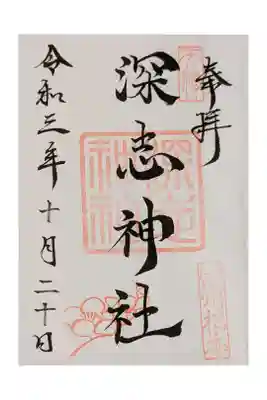 奉拝
深志神社
令和三年十月二十日